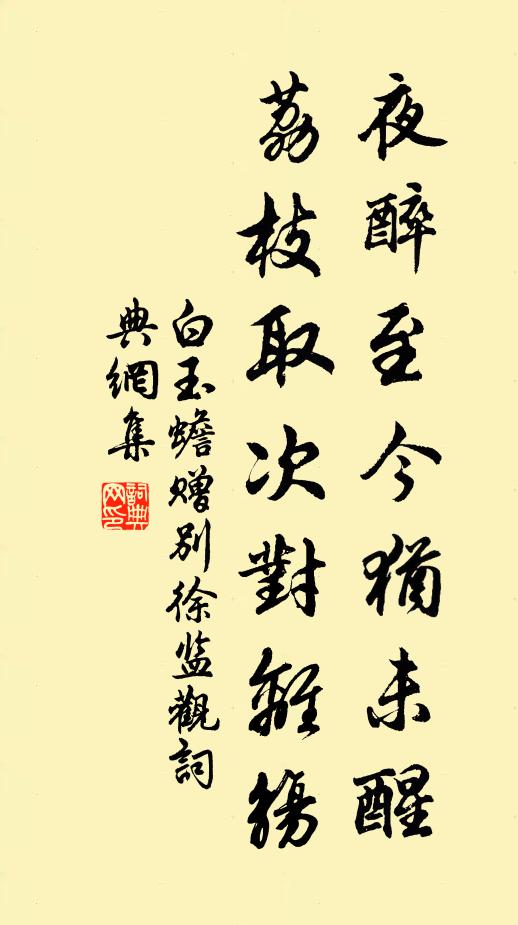 夜醉至今猶未醒
荔枝取次對離觴
白玉蟾赠别徐监觀詞
典網集
詞典
网印